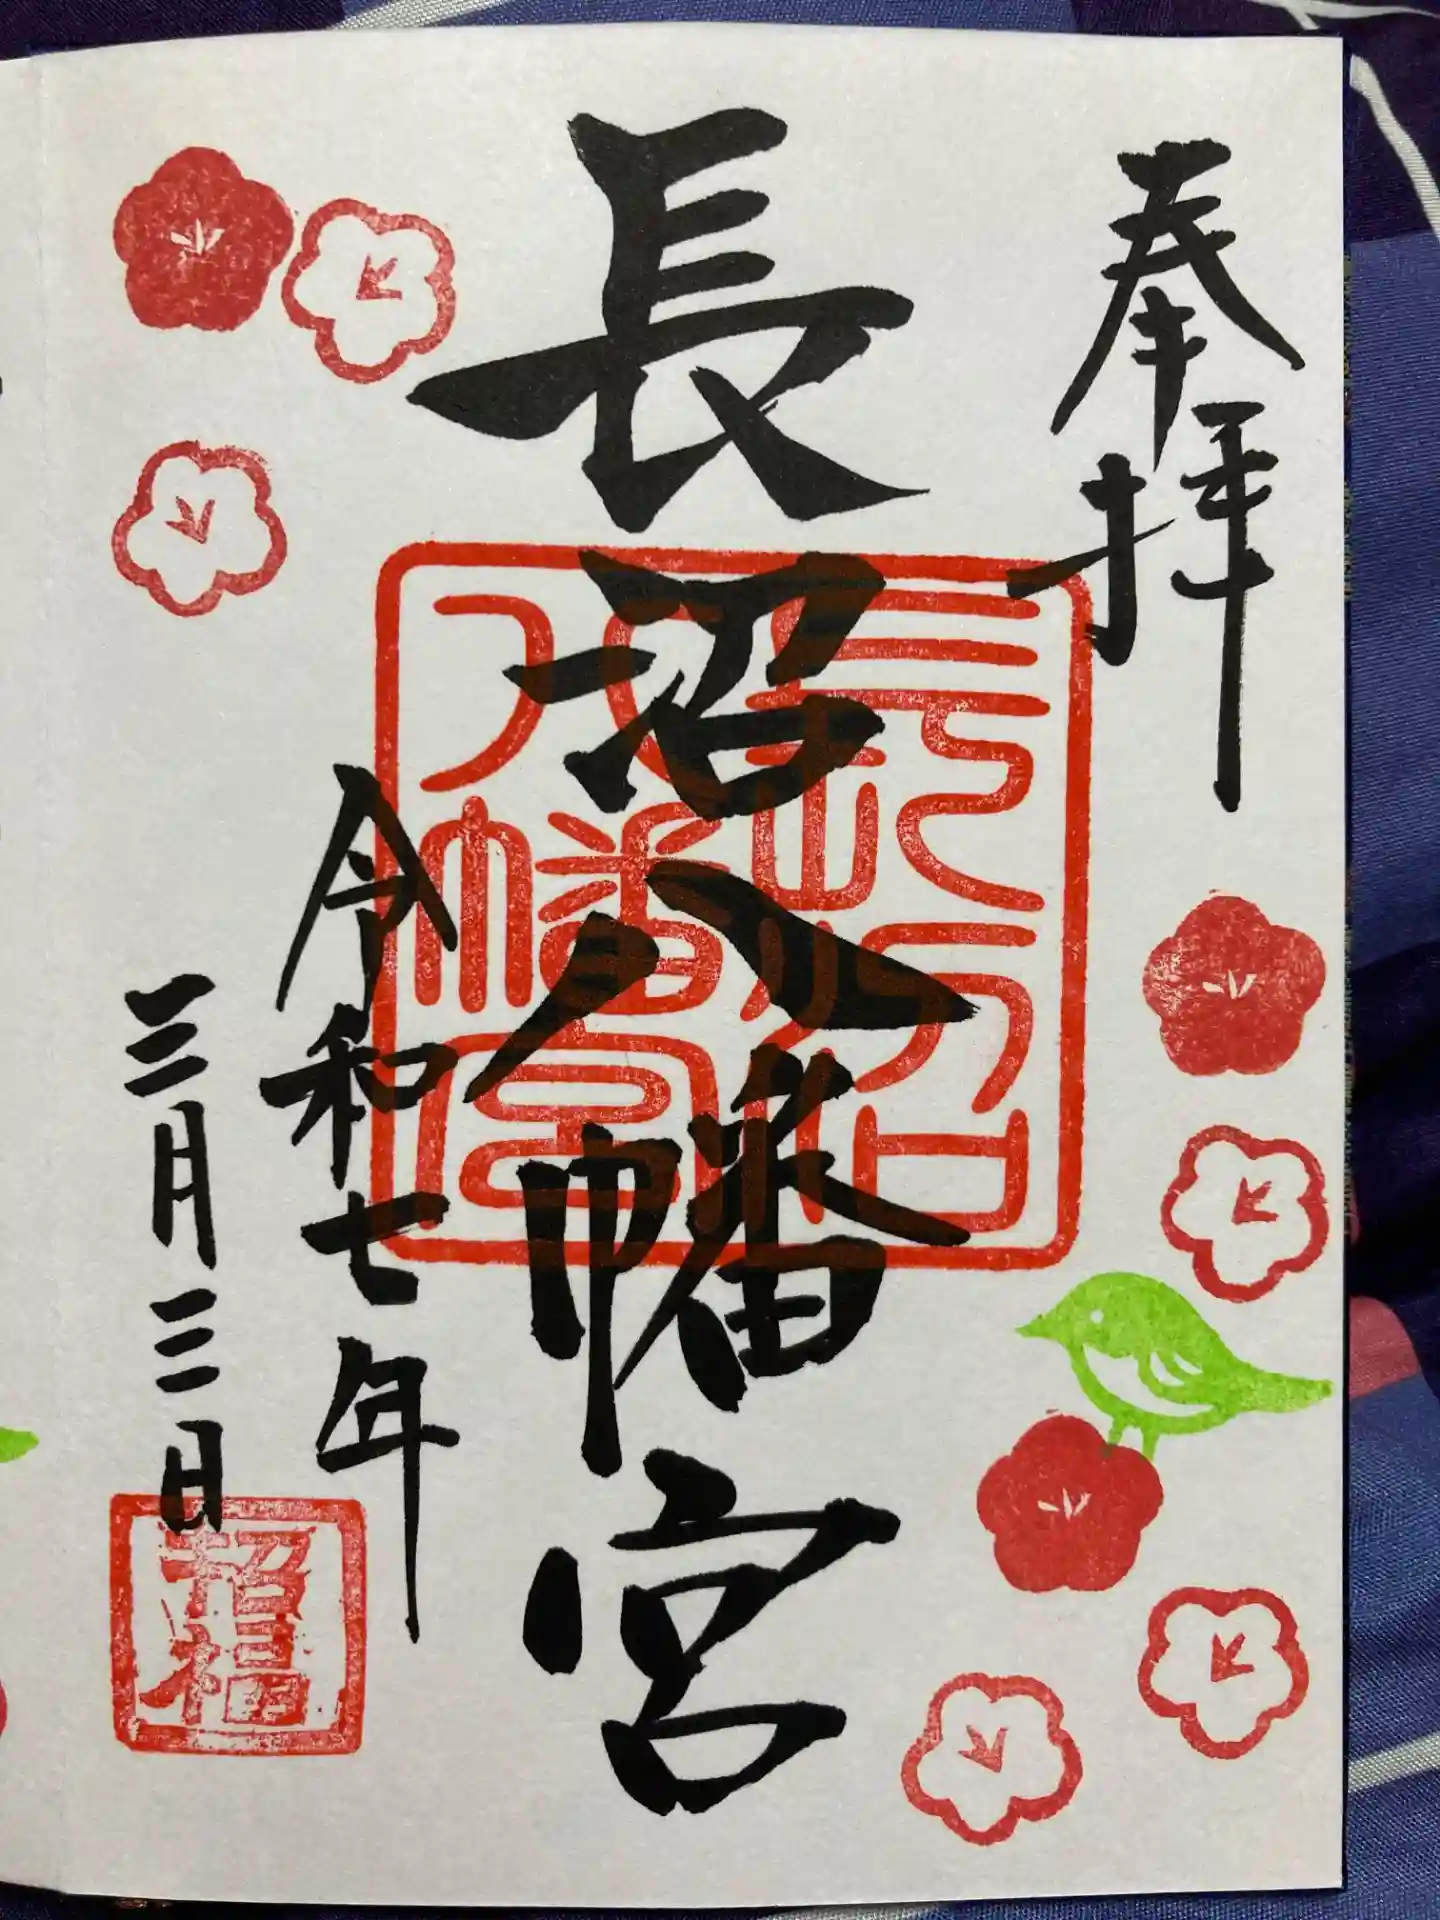 奉拝
長沼八幡宮
長沼八幡宮
令和七年
三月三日
招福